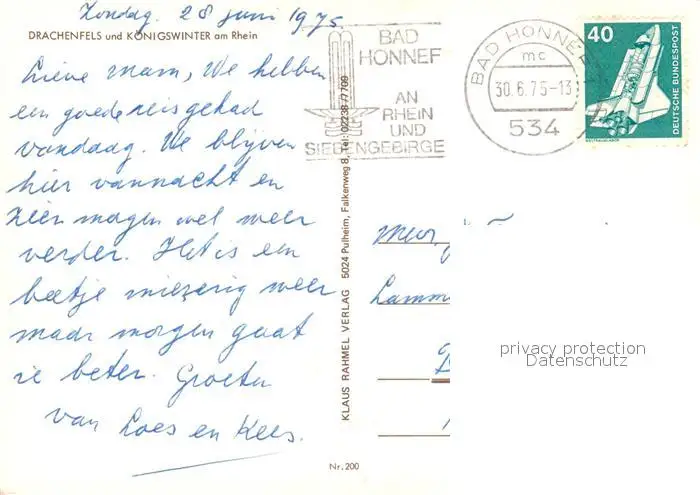 Zondag. 28 juni 1975
DRACHENFELS und KÖNIGSWINTER am Rhein
Lieve mam, We hebben
een goede reis gehad
vandaag. We blijven
hier vannacht en
zien morgen wel weer
verder. Het is een
beetje miezerig weer
maar morgen gaat
ie beter. Groeten
van Loes en Kees.
KLAUS RAHMEL VERLAG 5024 Pulheim, Falkenweg 8, Tel. 02238/7709
Nr. 200
BAD
HONNEF
AN
RHEIN
UND
SIEBENGEBIRGE
BAD HONNEF
mc
30.6.75-13
534
40
DEUTSCHE BUNDESPOST
WELTRAUMLABOR
Mevr.
Lamm
privacy protection
Datenschutz